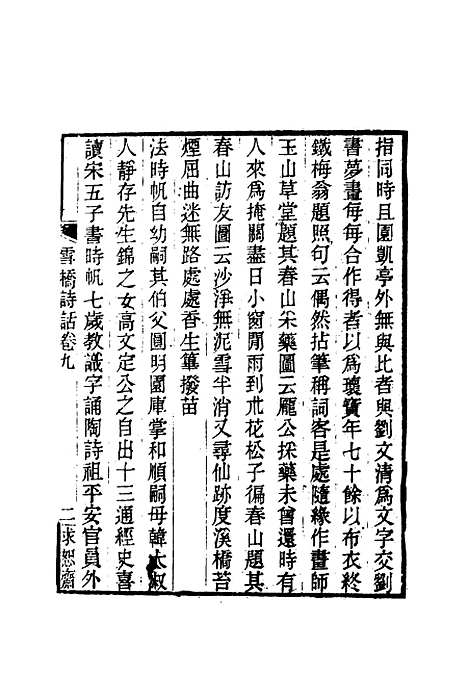 指同時且園凱亭外無與比者與劉文清爲文字交劉
書夢畫每每合作得者以爲瓌寶年七十餘以布衣終
鐵梅翁題照句云偶然拈筆稱詞客是處隨緣作畫師
玉山草堂題其春山采藥圖云龐公採藥未曾還時有
人來爲掩關盡日小窗閒雨到朮花松子徧春山題其
春山訪友圖云沙淨無泥雪半消又尋仙跡度溪橋苔
煙屈曲迷無路處處香生藥撥苗
法時帆自幼嗣其伯父圓明園庫掌和順嗣母韓太淑
人靜存先生錦之女高文定公之自出十三通經史喜
讀宋五子書時帆七歲教識字誦陶詩祖平安官員外
雪橋詩話卷九
二
求恕齋